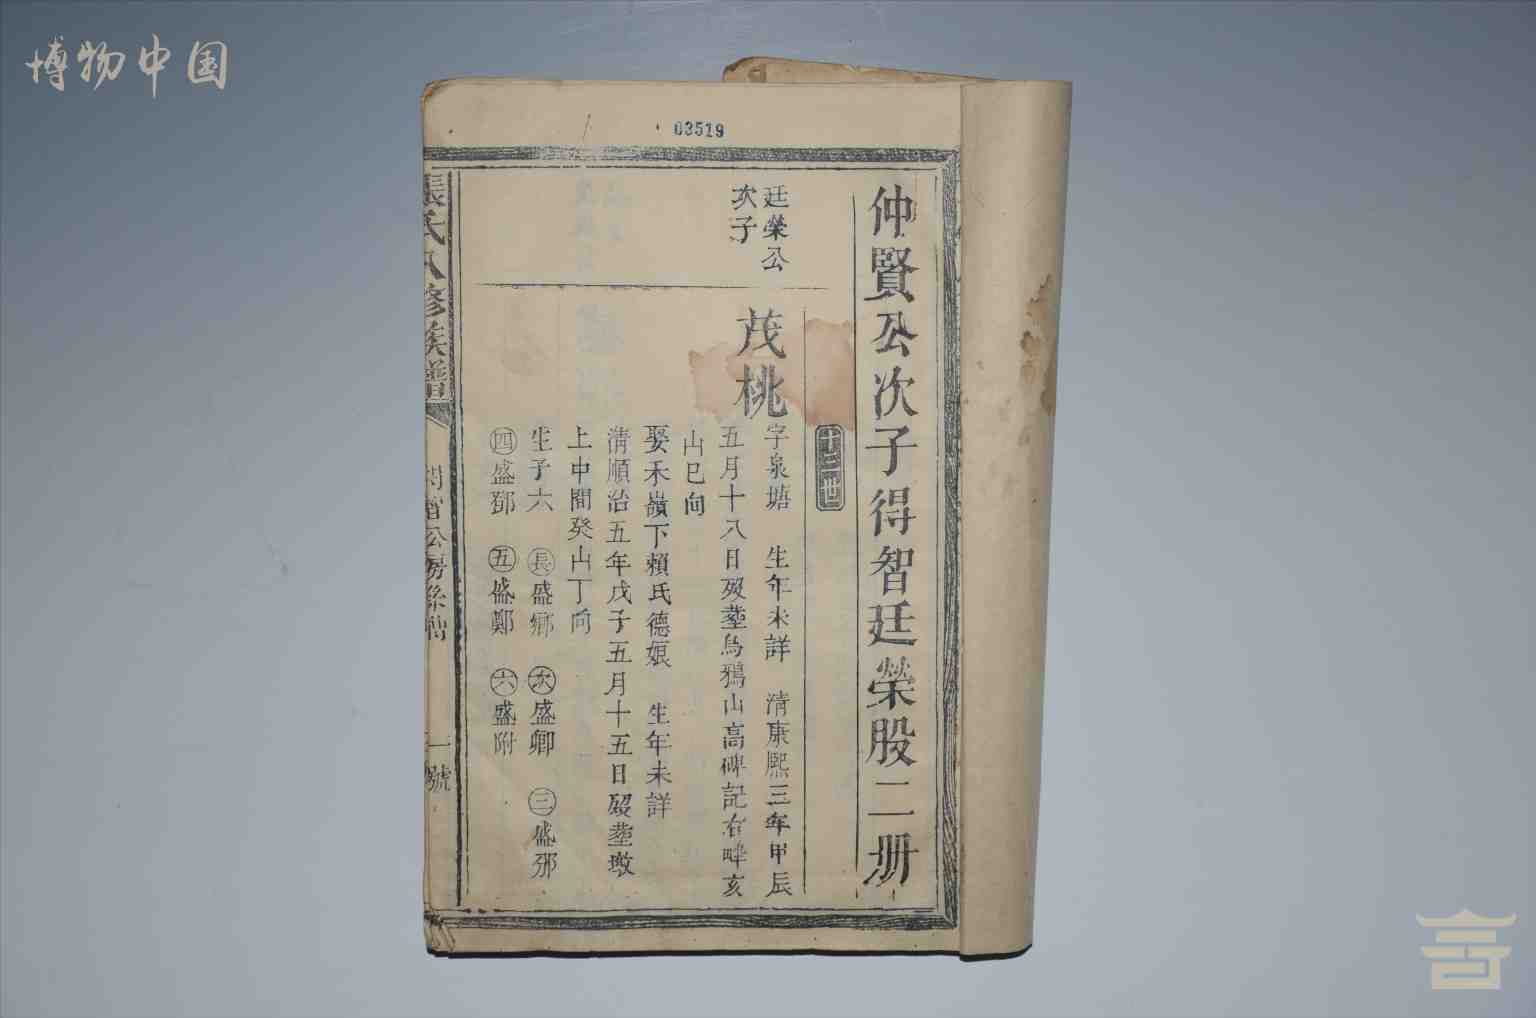 博物中国
03519
仲賢公次子得智廷榮股二册
十三世
廷榮公
次子
茂桃
字泉塘 生年未詳 清康熙三年甲辰
五月十八日歿塟烏鴉山高碑記右畔亥
山巳向
娶禾嶺下賴氏德娘 生年未詳
清順治五年戊子五月十五日歿塟墩
上中間癸山丁向
生子六 長盛鄉 次盛卿 三盛邪
四盛鄧 五盛鄭 六盛附
張氏八修族譜
公房系傳
一號